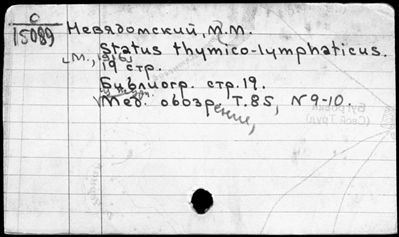 С
15089
Невядомский, М.М.
Status thymico-lymphaticus.
[М., 1916]
19 стр.
Библиогр. стр. 19.
Мед. обозрение, Т.85, N 9-10.